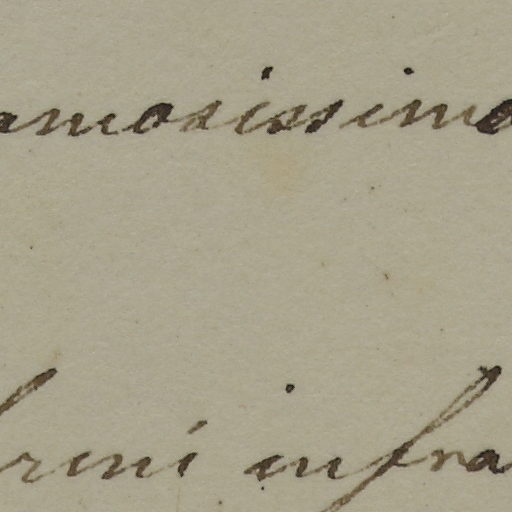 amosissimo
reni infra